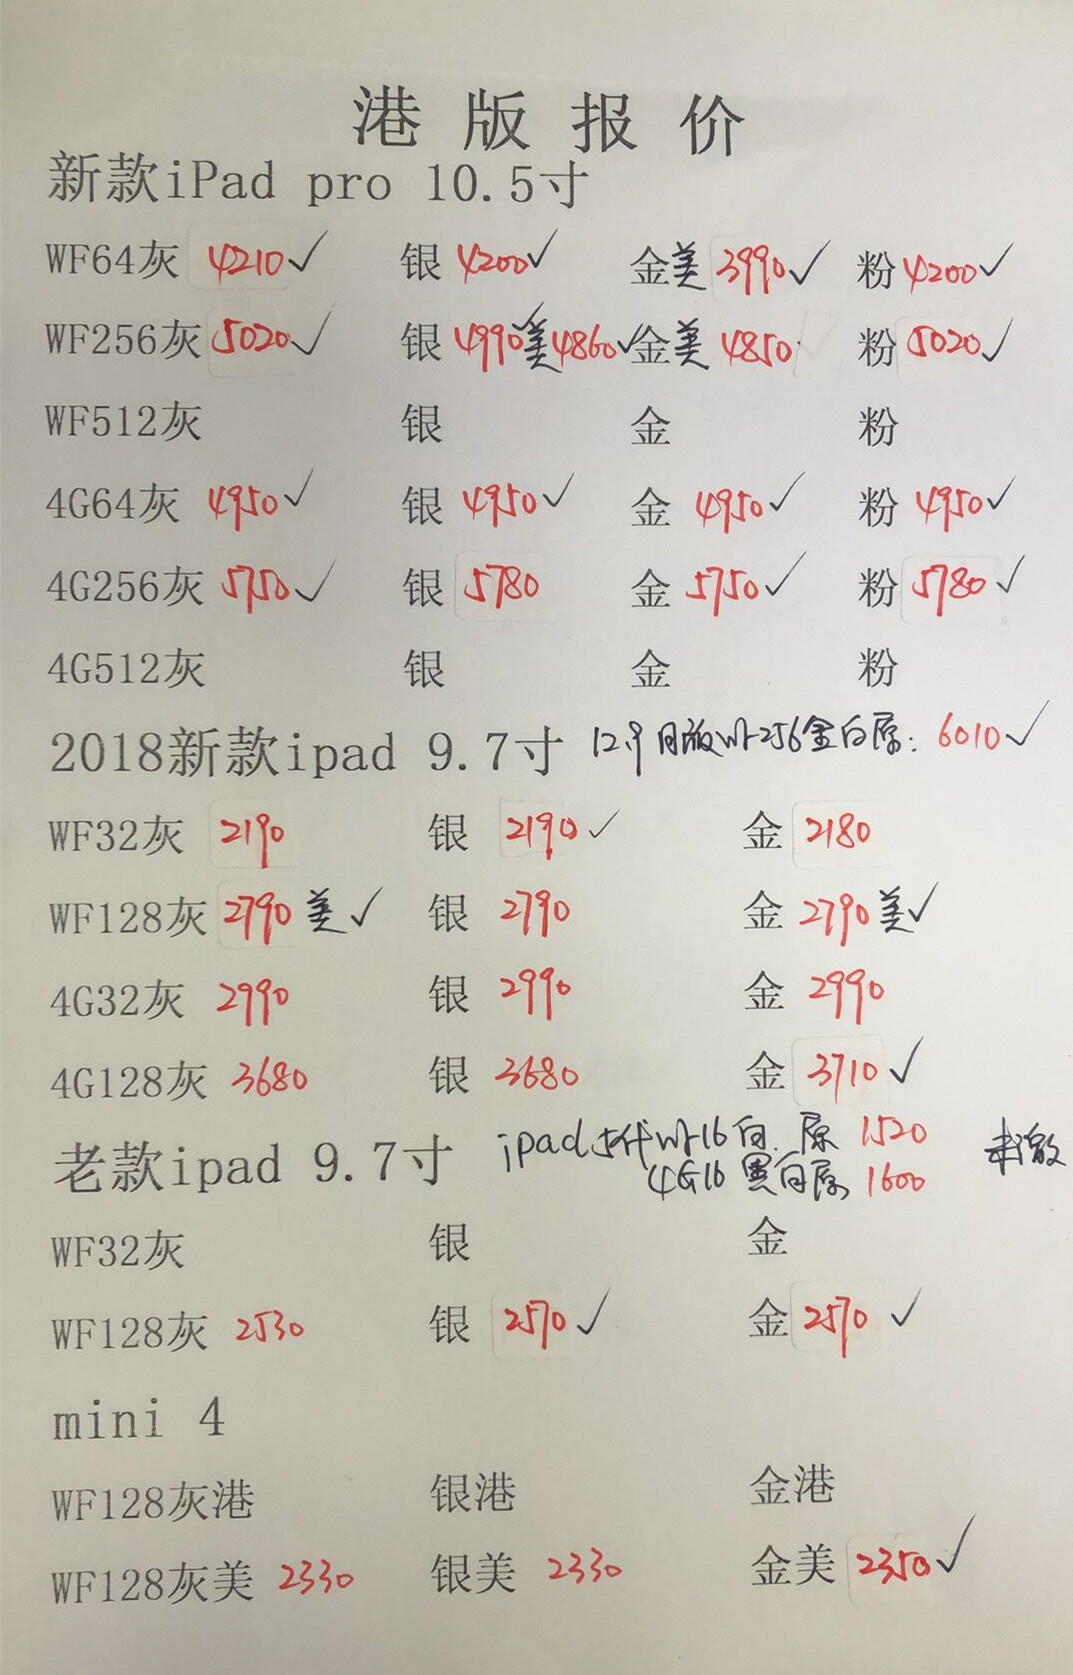 港版报价
新款iPad pro 10.5寸
WF64灰 4210✓ 银 4200✓ 金美 3990✓ 粉 4200✓
WF256灰 5020✓ 银 4990✓美4860✓ 金美 4850 粉 5020✓
WF512灰 银 金 粉
4G64灰 4950✓ 银 4950✓ 金 4950✓ 粉 4950✓
4G256灰 5750✓ 银 5780 金 5750✓ 粉 5780✓
4G512灰 银 金 粉
2018新款ipad 9.7寸 12.9 月版wifi256金白原: 6010✓
WF32灰 2190 银 2190✓ 金 2180
WF128灰 2790 美✓ 银 2790 金 2790美✓
4G32灰 2990 银 2990 金 2990
4G128灰 3680 银 3680 金 3710✓
老款ipad 9.7寸 ipad5代wifi16白.原 1520 未激
4G16 黑白原 1600
WF32灰 银 金
WF128灰 2530 银 2570✓ 金 2570✓
mini 4
WF128灰港 银港 金港
WF128灰美 2330 银美 2330 金美 2350✓